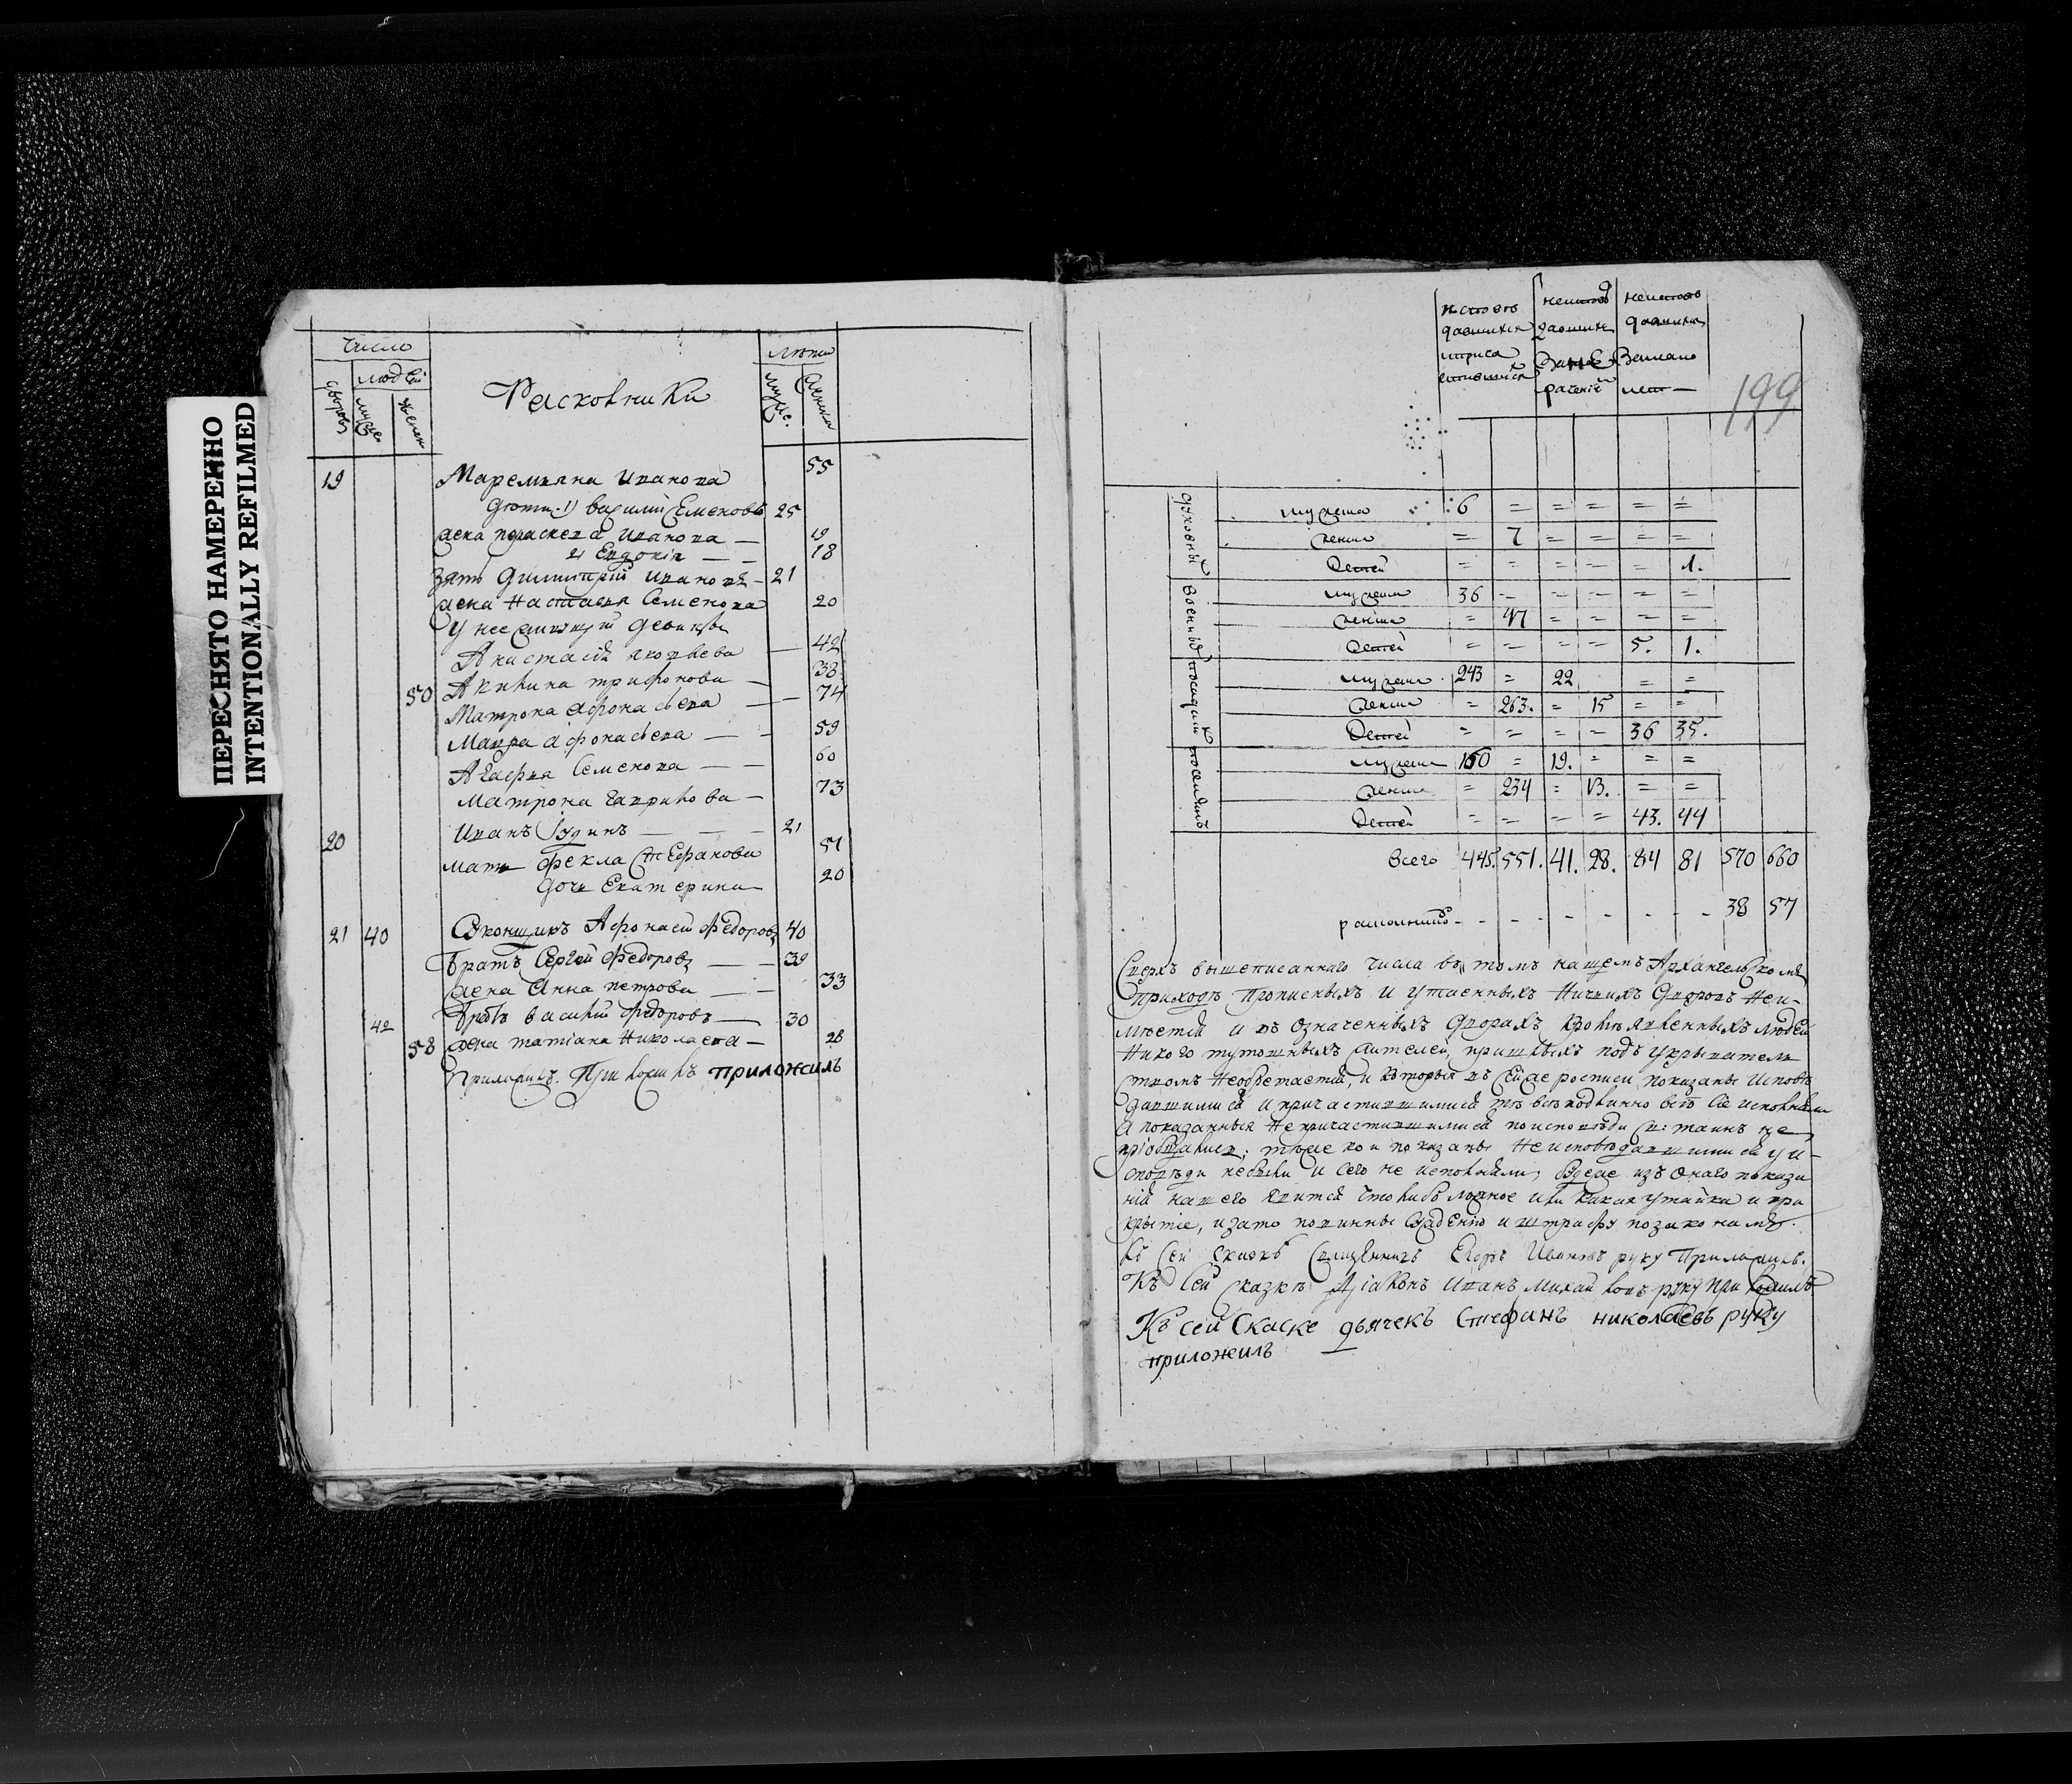 ПЕРЕСНЯТО НАМЕРЕННО
INTENTIONALLY REFILMED
Число
людей
дворовъ
мужес
женск
Расколники
Лѣта
мужес.
женска
19 Маремьяна Иванова 55
дѣти 1) василий Семеновъ 25
жена параскева Иванова — 19
2) Евдокия — — 18
Зять Димитрий Ивановъ — 21
жена Настасья Семенова 20
У нее живущи девицы
Анастасия яковлева — 42
50 Акилина трифонова — 38
Матрона Афонасьева — — 74
Мавра афонасьева — — 59
Агафия Семенова — — 60
Матрона гаврилова — 73
20 Иванъ Юдинъ — — — 21
мать Фекла Стефанова 51
дочь Екатерина 20
21 40 Афонасей Федоровъ 40
братъ Сергей Федоровъ — — 39
жена Анна петрова — — 33
42 братъ василий Федоровъ — 30
58 жена татиана Николаева — 28
приложилъ
199
исповѣ
давшихся
и прича
стившихся
неисповѣ
давших
За не
рачениемъ
неисповѣ
давших
Замало
лет —
духовный
мужеска 6 = = = = =
женска = 7 = = = =
Детей = = = = = 1.
военный
мужеска 36 = = = = =
женска = 47 = = = =
Детей = = = = 5. 1.
посадский
мужеска 243 = 22 = =
женска = 263. = 15 = =
Детей = = = = 36 35.
поселянъ
мужеска 160 = 19. = = =
женска = 234 = 13. = =
Детей = = = = 43. 44
Всего 445. 551. 41. 28. 84 81 570 660
расколниковъ - - - - - - - 38 57
Сверхъ вышеписаннаго числа въ томъ нашемъ Архангельскомъ
приходѣ прописныхъ и утаенныхъ Ничьихъ дворовъ Неи-
мѣется и въ означенныхъ дворахъ кромѣ явленныхъ людей
Никого тутошныхъ жителей, пришлыхъ подъ укрывательс
твомъ Необретается, и которыя въ сейже росписи показаны Исповѣ
давшимися и причастившимися тѣ всѣ подлинно всѣ сие исполнили
А показанныя Не причастившимися по исповѣди С: таинъ не
приобщались; также кои показаны Неисповѣдавшимися у и-
сповѣди не были и сего не исполняли; Буде изъ онаго показа
ния нашего явится что либо ложное или какая утайка и при
крытие, и зато повинны суждению и штрафу по законамъ.
Къ сей скаскѣ священникъ Егоръ Ивановъ руку Приложилъ.
Къ сей сказкѣ Диаконъ Иванъ Михайловъ руку приложилъ
Къ сей Скаске дьячекъ Стефанъ николаевъ руку
приложилъ